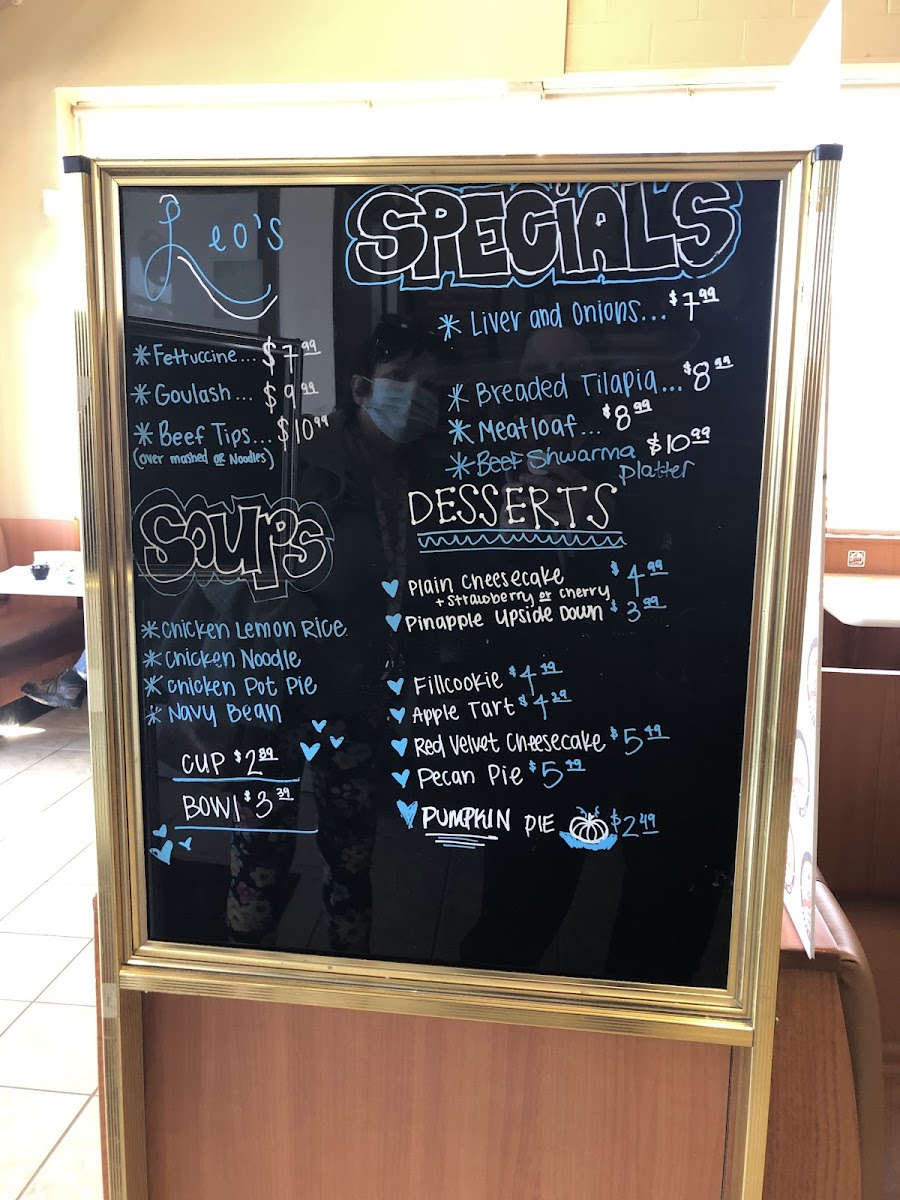 Leo's
SPECIALS
* Liver and Onions... $7.99
* Fettuccine... $7.99
* Goulash... $9.99
* Beef Tips... $10.99
(over mashed or Noodles)
* Breaded Tilapia... $8.99
* Meatloaf... $8.99
* Beef Shwarma $10.99
Platter
SOUPS
* Chicken Lemon Rice
* Chicken Noodle
* Chicken Pot Pie
* Navy Bean
CUP $2.89
BOWl $3.39
DESSERTS
Plain Cheesecake $4.99
+ Strawberry or Cherry
Pinapple Upside Down $3.99
Fillcookie
Apple Tart
Red Velvet Cheesecake
Pecan Pie
PUMPKIN PIE $2.49